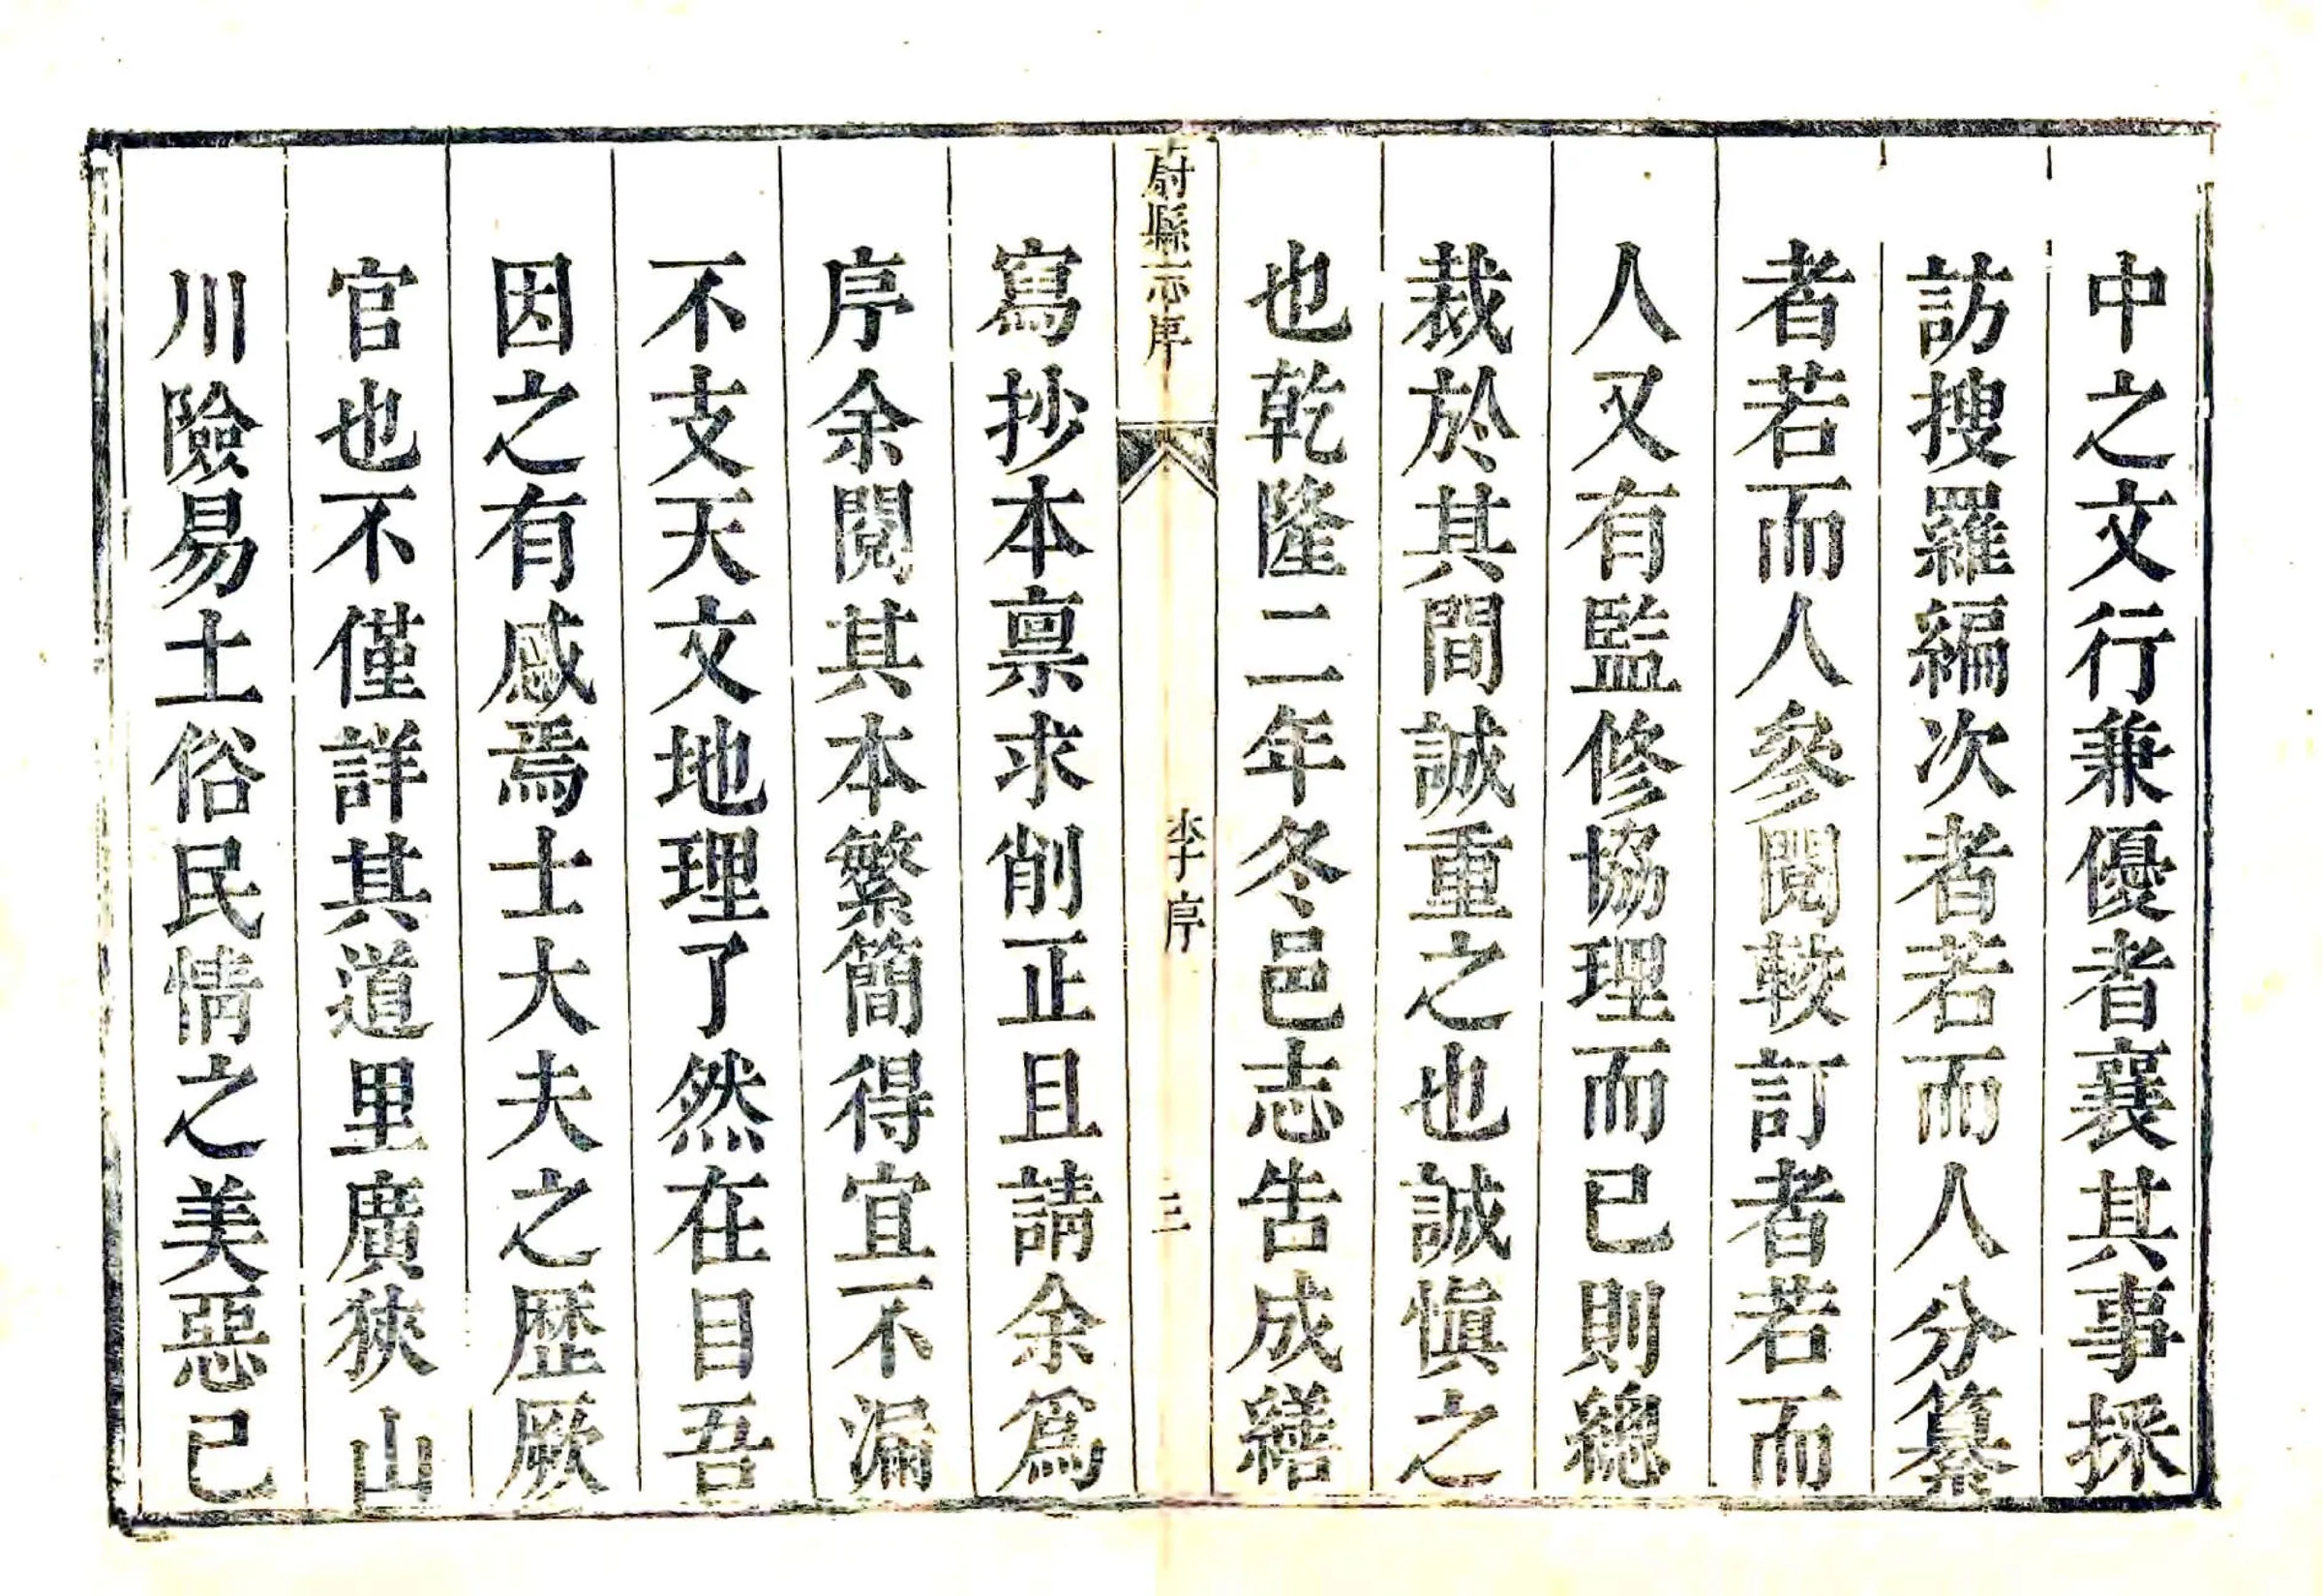 中之文行兼優者襄其事採
訪搜羅編次者若而人分纂
者若而人參閱較訂者若而
人又有監修協理而已則總
裁於其間誠重之也誠愼之
也乾隆二年冬邑志告成繕
蔚縣志序
李序
三
寫抄本禀求削正且請余爲
序余閱其本繁簡得宜不漏
不支天文地理了然在目吾
因之有感焉士大夫之歷厥
官也不僅詳其道里廣狹山
川險易土俗民情之美惡已